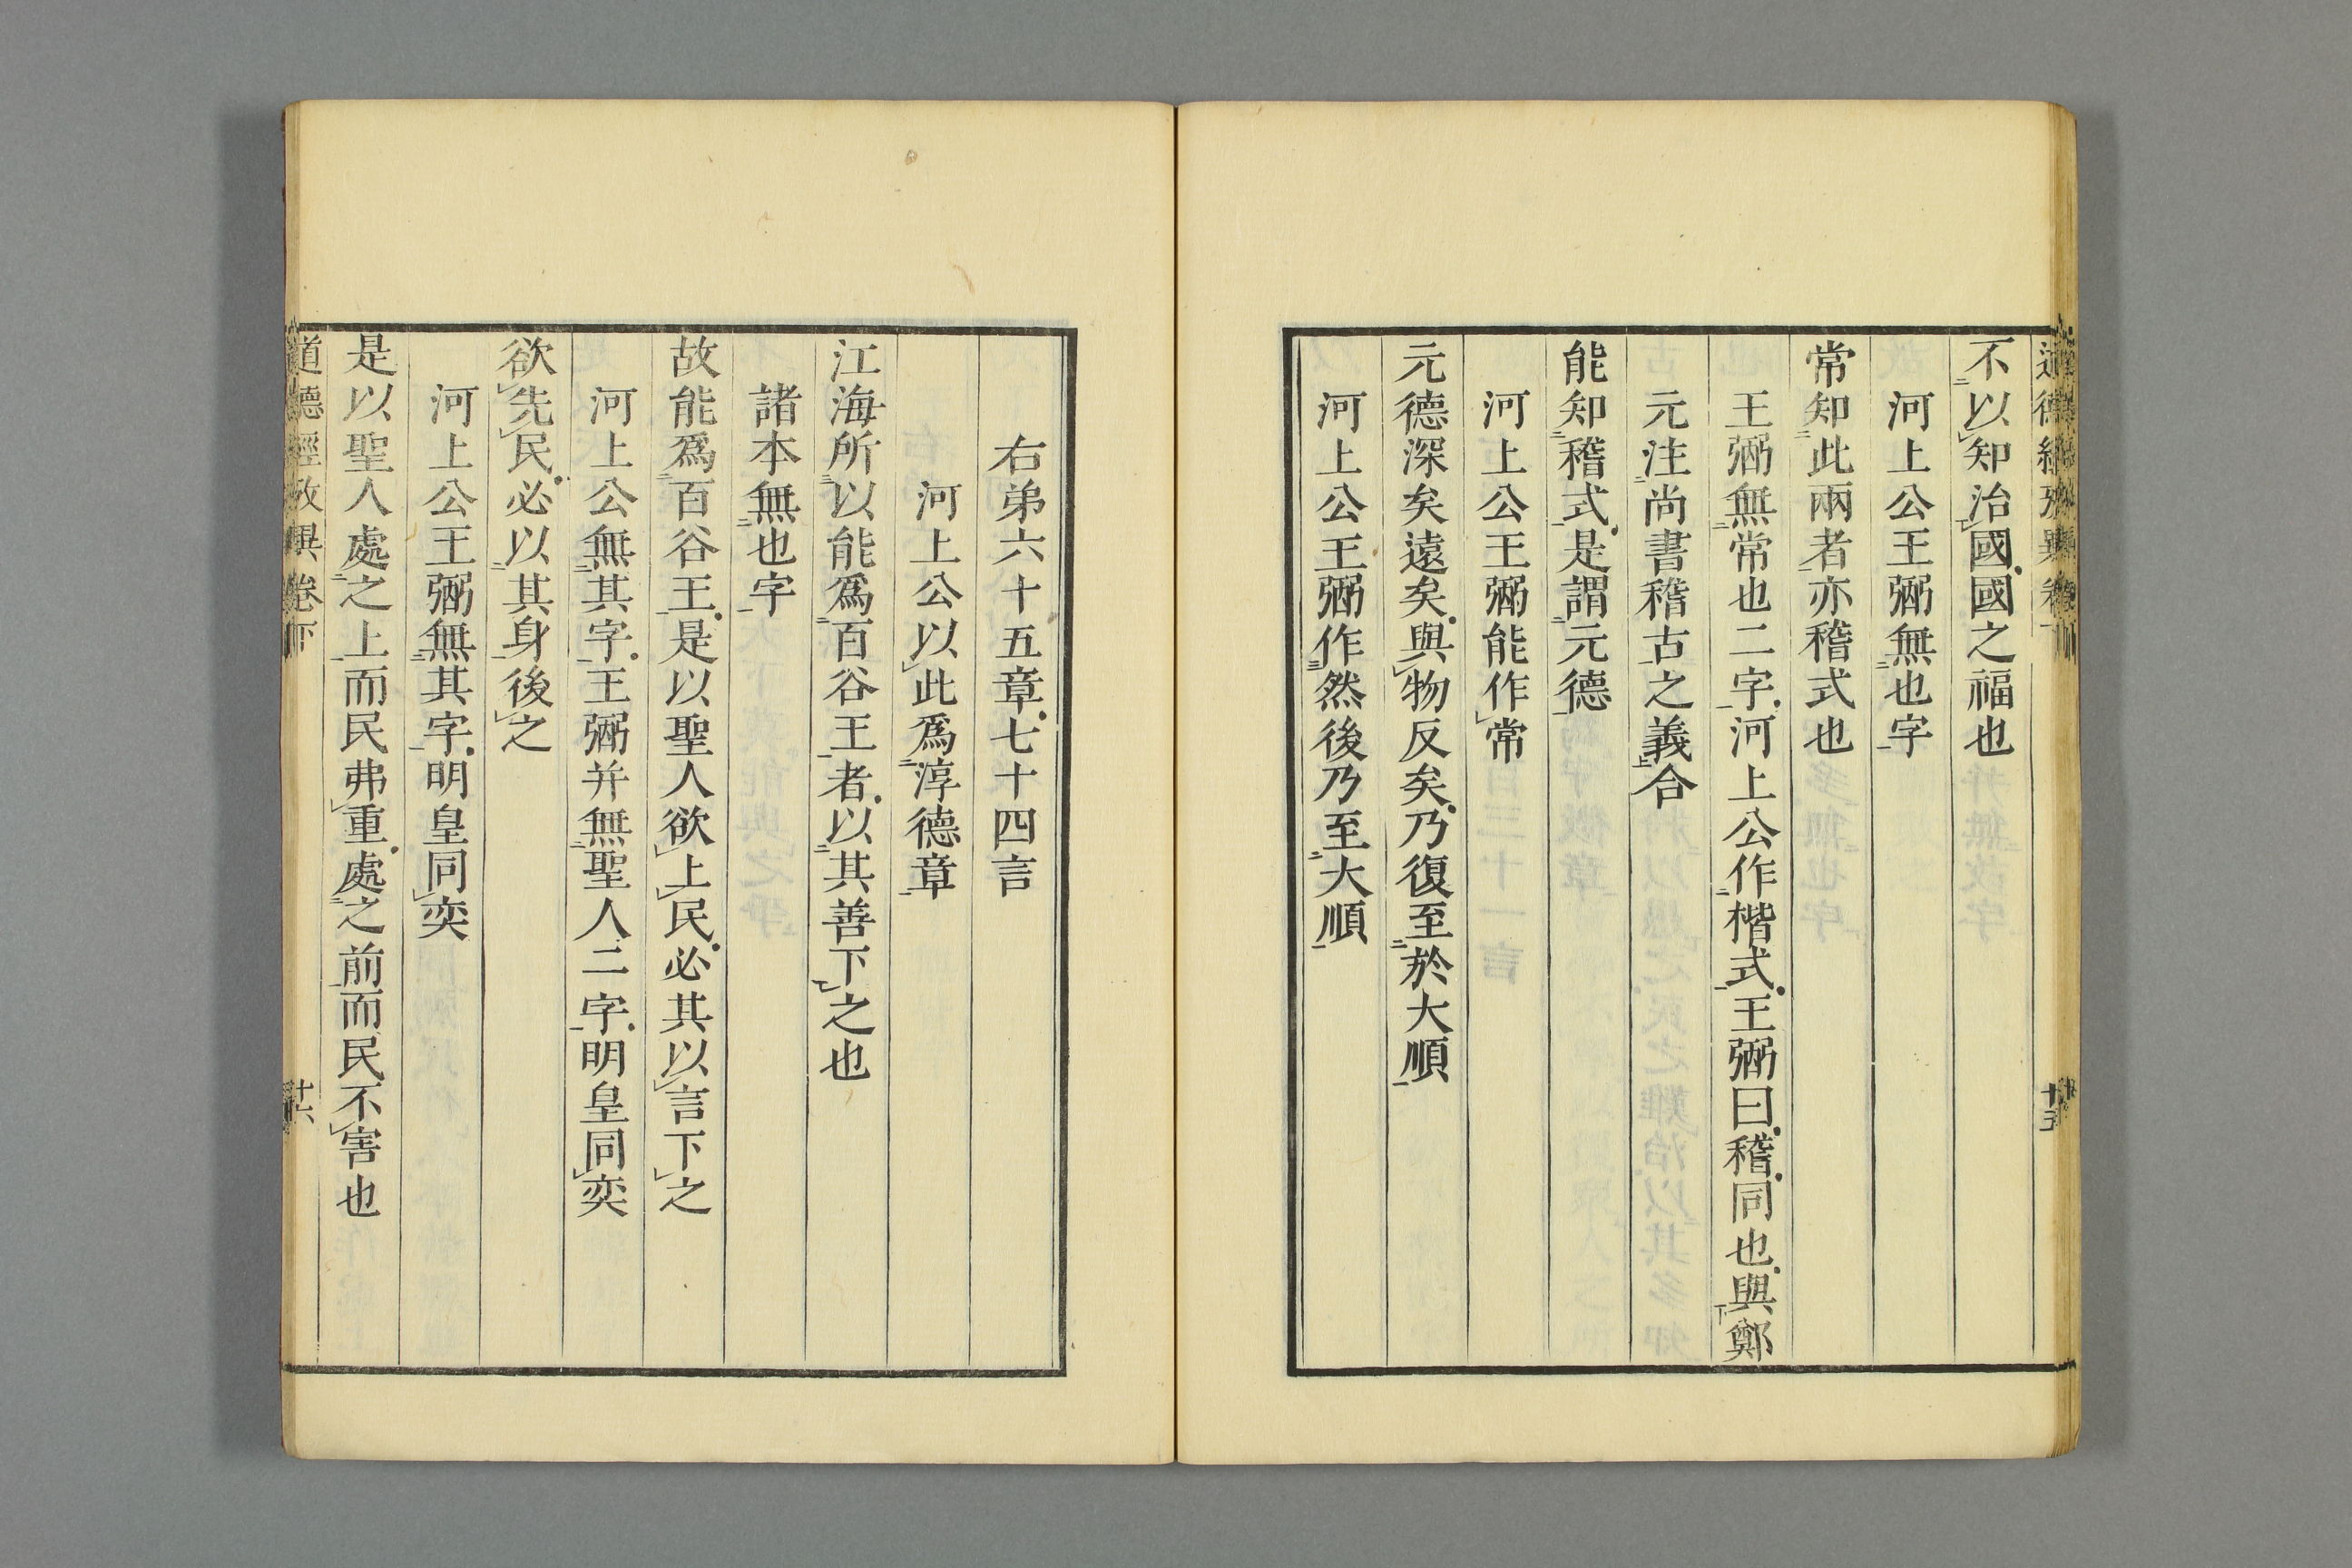 不以知治國國之福也
河上公王弼無也字
常知此兩者亦稽式也
王弼無常也二字河上公作楷式王弼曰稽同也與鄭
元注尚書稽古之義合
能知稽式是謂元德
河上公王弼能作常
元德深矣遠矣與物反矣乃復至於大順
河上公王弼作然後乃至大順
右弟六十五章七十四言
河上公以此爲淳德章
江海所以能爲百谷王者以其善下之也
諸本無也字
故能爲百谷王是以聖人欲上民必其以言下之
河上公無其字王弼并無聖人二字明皇同奕
欲先民必以其身後之
河上公王弼無其字明皇同奕
是以聖人處之上而民弗重處之前而民不害也
道德經攷異卷下
十六